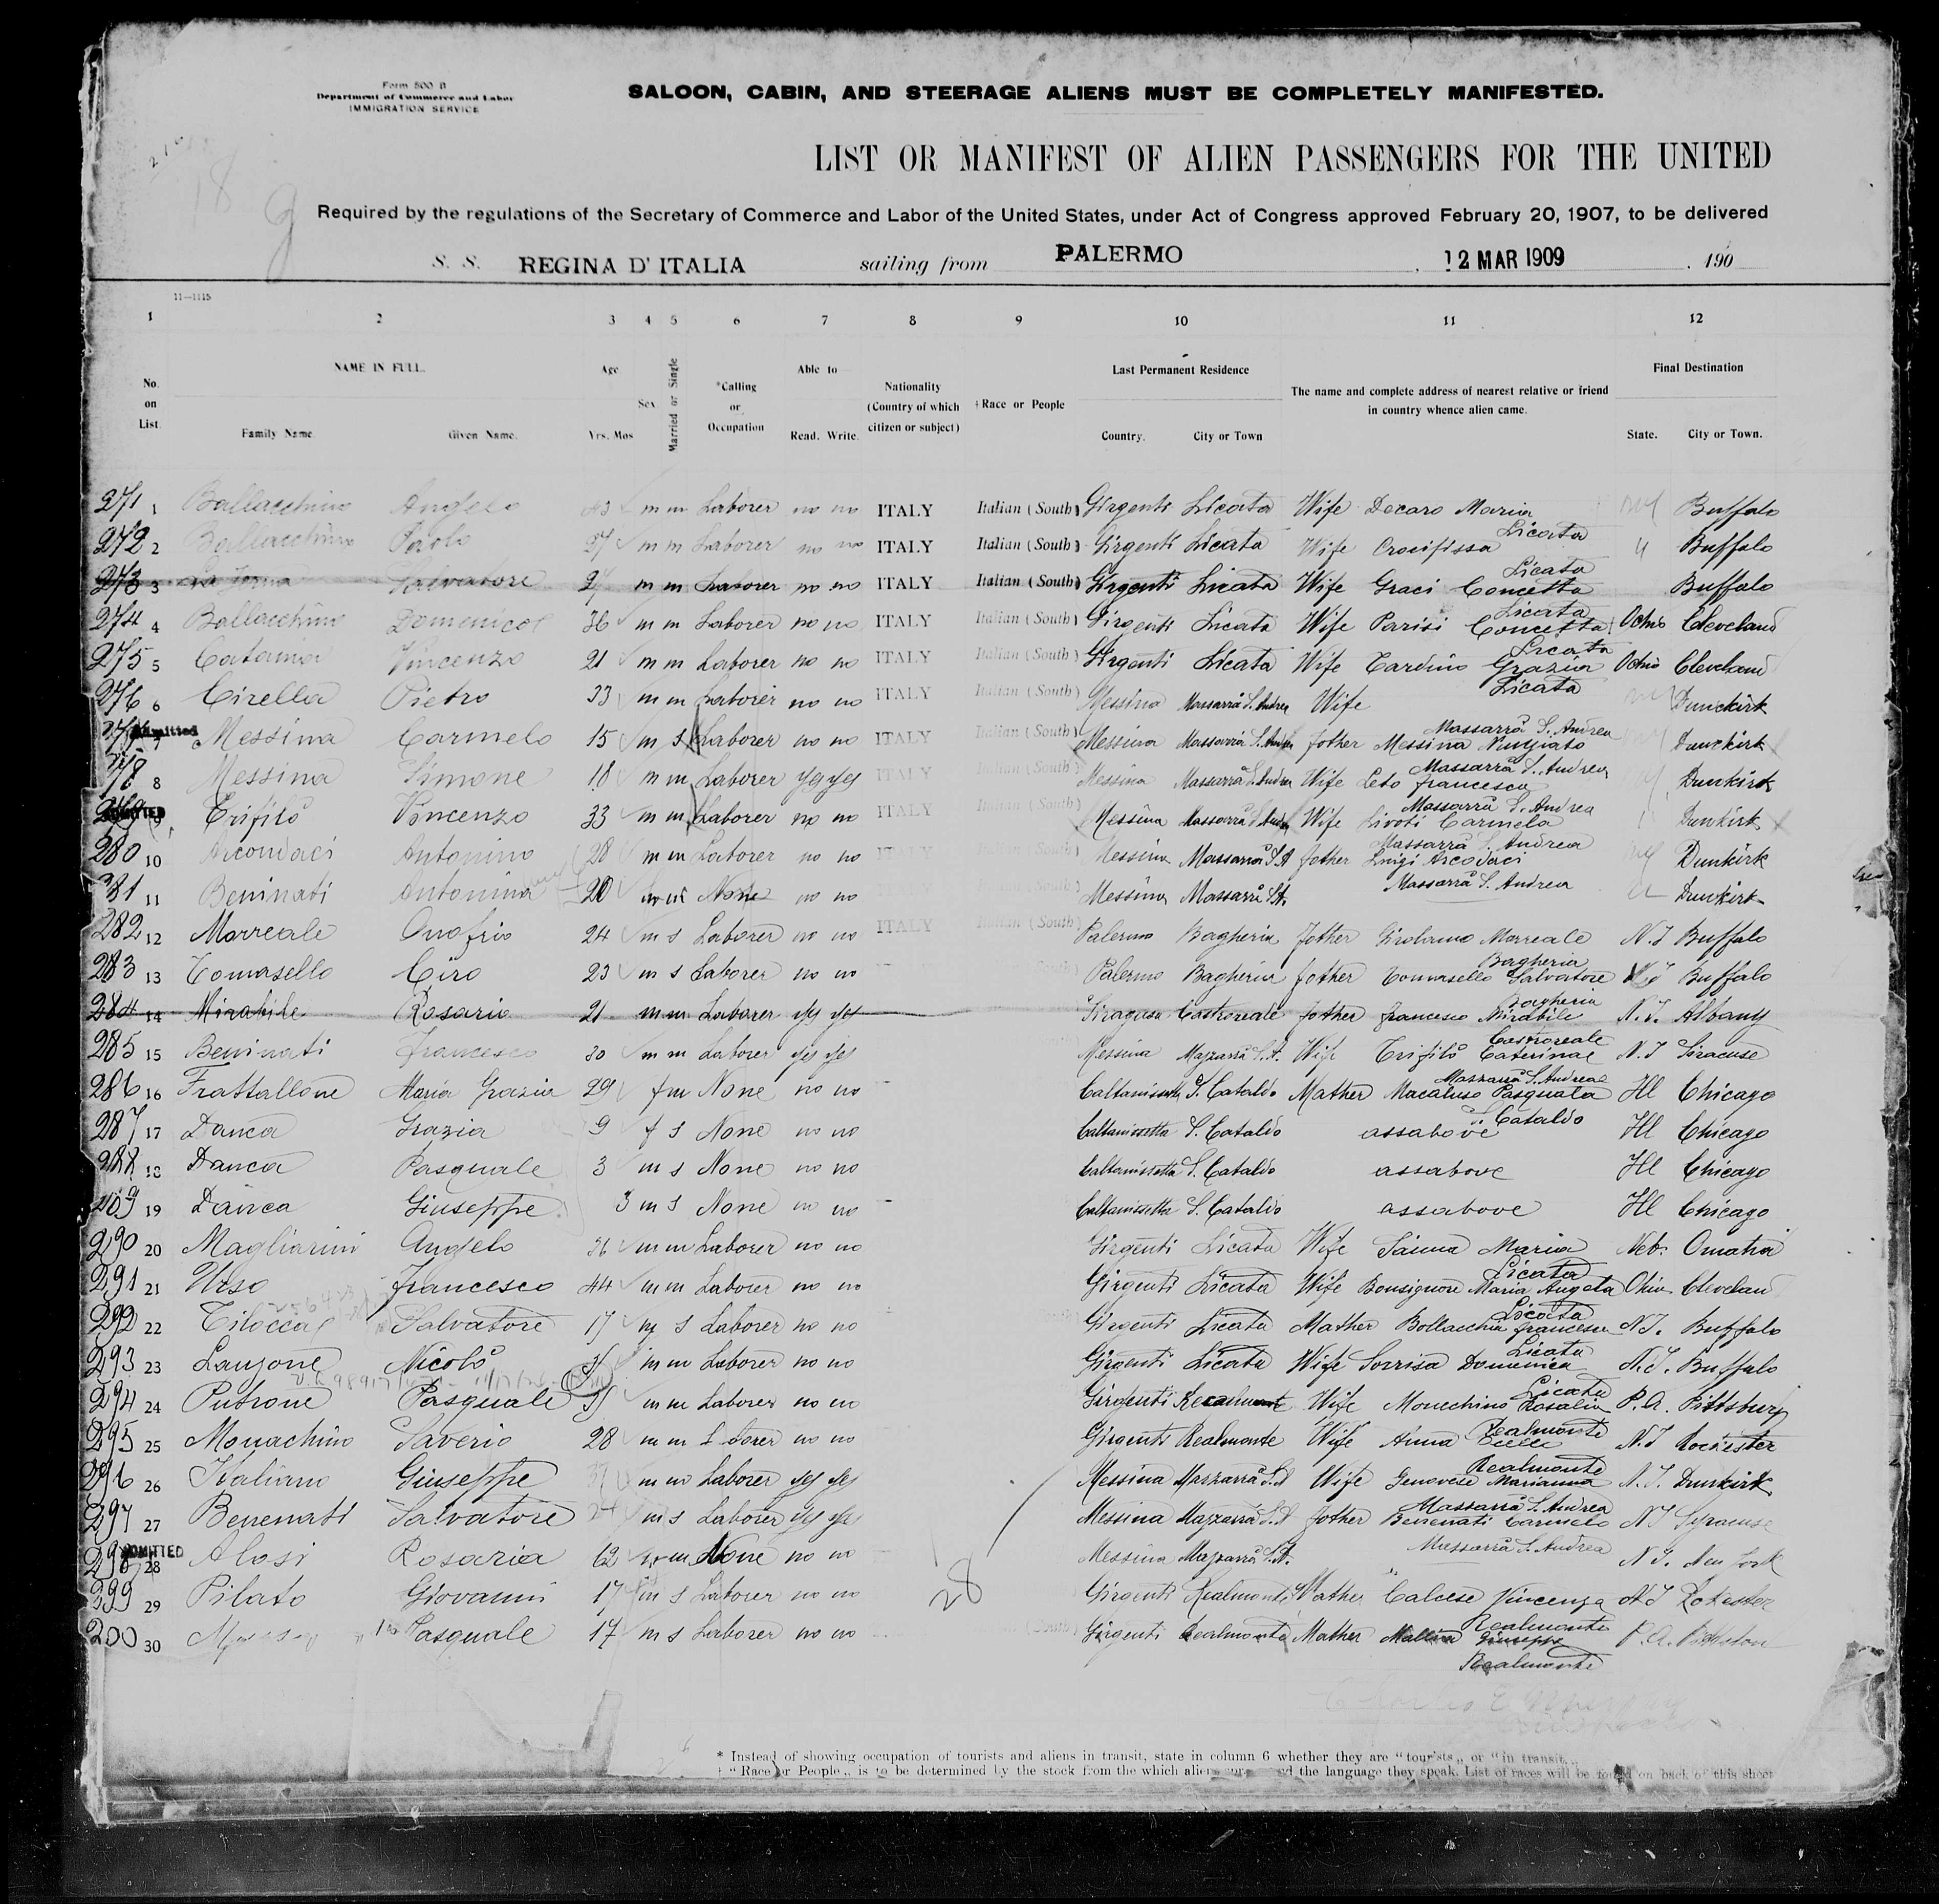 Form 500 B
Department of Commerce and Labor
IMMIGRATION SERVICE
SALOON, CABIN, AND STEERAGE ALIENS MUST BE COMPLETELY MANIFESTED.
LIST OR MANIFEST OF ALIEN PASSENGERS FOR THE UNITED
Required by the regulations of the Secretary of Commerce and Labor of the United States, under Act of Congress approved February 20, 1907, to be delivered
S. S. REGINA D'ITALIA sailing from PALERMO , 12 MAR 1909 . 190
11—1115
1 2 3 4 5 6 7 8 9 10 11 12
No. on List. NAME IN FULL. Family Name. Given Name. Age Yrs. Mos Sex Married or Single *Calling or Occupation Able to Read. Write. Nationality (Country of which citizen or subject) †Race or People Last Permanent Residence Country. City or Town The name and complete address of nearest relative or friend in country whence alien came. Final Destination State. City or Town.
271 1 Ballacchino Angelo 43 m m Laborer no no ITALY Italian (South) Girgenti Licata Wife Decaro Maria Licata NY Buffalo
272 2 Ballacchino Paolo 27 m m Laborer no no ITALY Italian (South) Girgenti Licata Wife Crocifissa Licata " Buffalo
273 3 Salvatore 27 m m Laborer no no ITALY Italian (South) Girgenti Licata Wife Graci Concetta Licata Buffalo
274 4 Ballacchino Domenico 36 m m Laborer no no ITALY Italian (South) Girgenti Licata Wife Parisi Concetta Licata Ohio Cleveland
275 5 Catania Vincenzo 21 m m Laborer no no ITALY Italian (South) Girgenti Licata Wife Cardino Grazia Licata Ohio Cleveland
276 6 Cirella Pietro 33 m m Laborer no no ITALY Italian (South) Messina Massarrà S. Andrea Wife Massarrà S. Andrea NY Dunckirk
277 Admitted 7 Messina Carmelo 15 m s Laborer no no ITALY Italian (South) Messina Massarrà S. Andrea father Messina Nunziato Massarrà S. Andrea Dunckirk
278 8 Messina Simone 18 m m Laborer yes yes ITALY Italian (South) Messina Massarrà S. Andrea Wife Leto francesca Massarrà S. Andrea Dunkirk
ADMITTED 9 Trifilò Vincenzo 33 m m Laborer no no ITALY Messina Massarrà S. Andrea Wife Livoti Carmela Massarrà S. Andrea Dunkirk
280 10 Arcondaci Antonino 28 m m Laborer no no Messina Massarrà S. A father Luigi Ascodaci Massarrà S. Andrea NY Dunkirk
281 11 Beninati Antonina 20 None no no Messina Massarrà S.A. Dunkirk
282 12 Morreale Onofrio 24 m s Laborer no no ITALY Italian (South) Palermo Bagheria father Girolamo Morreale Bagheria N.J Buffalo
283 13 Tomasello Ciro 23 m s Laborer no no Palermo Bagheria father Tomasello Salvatore Bagheria N.J Buffalo
284 14 Mirabile Rosario 21 m m Laborer yes yes Siragusa Castroreale father francesco Mirabile Castroreale N.J. Albany
285 15 Beninati francesco 30 m m Laborer yes yes Messina Mazzarrà S.A. Wife Trifilò Caterina Mazzarrà S. Andrea N.J Siracuse
286 16 Frattallone Maria Grazia 29 f m None no no Caltanissetta S. Cataldo Mather Macaluso Pasquala S. Cataldo Ill Chicago
287 17 Danca Grazia 9 f s None no no Caltanissetta S. Cataldo assabove Ill Chicago
288 18 Danca Pasquale 3 m s None no no Caltanissetta S. Cataldo assabove Ill Chicago
289 19 Danca Giuseppe 3 m s None no no Caltanissetta S. Cataldo assabove Ill Chicago
290 20 Magliarini Angelo 26 m m Laborer no no Girgenti Licata Wife Sanna Maria Licata Neb. Omaha
291 21 Urso francesco 44 m m Laborer no no Girgenti Licata Wife Bonsignore Maria Angela Licata Ohio Clevelan
292 22 Tilocca Salvatore 17 m s Laborer no no Girgenti Licata Mather Bollacchia francesca Licata N.J. Buffalo
293 23 Lanzone Nicolò m m Laborer no no Girgenti Licata Wife Sorrisa Domenica Licata N.J. Buffalo
294 24 Putrone Pasquale m m Laborer no no Girgenti Realmonte Wife Monechino Rosalia Realmonte P.A. Pittsburg
295 25 Monachino Saverio 28 m m Laborer no no Girgenti Realmonte Wife Anna Realmonte N.J Rochester
296 26 Italiano Giuseppe 37 m m Laborer yes yes Messina Mazzarrà S.A Wife Genovese Marianna Massarrà S. Andrea N.J. Dunkirk
297 27 Benenati Salvatore 24 m s Laborer yes yes Messina Mazzarrà S.A father Benenati Carmelo Massarrà S. Andrea N.J Syracuse
298 ADMITTED 28 Alosi Rosaria 62 None no no Messina Mazzarrà S.A. N.J. New York
299 29 Pilato Giovanni 17 m s Laborer no no Girgenti Realmonte Mather Calcese Vincenza Realmonte N.J Rochester
200 30 Pasquale 17 m s Laborer no no Girgenti Realmonte Mather Mallia Giuseppa Realmonte P.A. Pittston
28
* Instead of showing occupation of tourists and aliens in transit, state in column 6 whether they are "tourists,, or "in transit,,
† "Race or People,, is to be determined by the stock from the which aliens and the language they speak. List of races will be found on back of this sheet